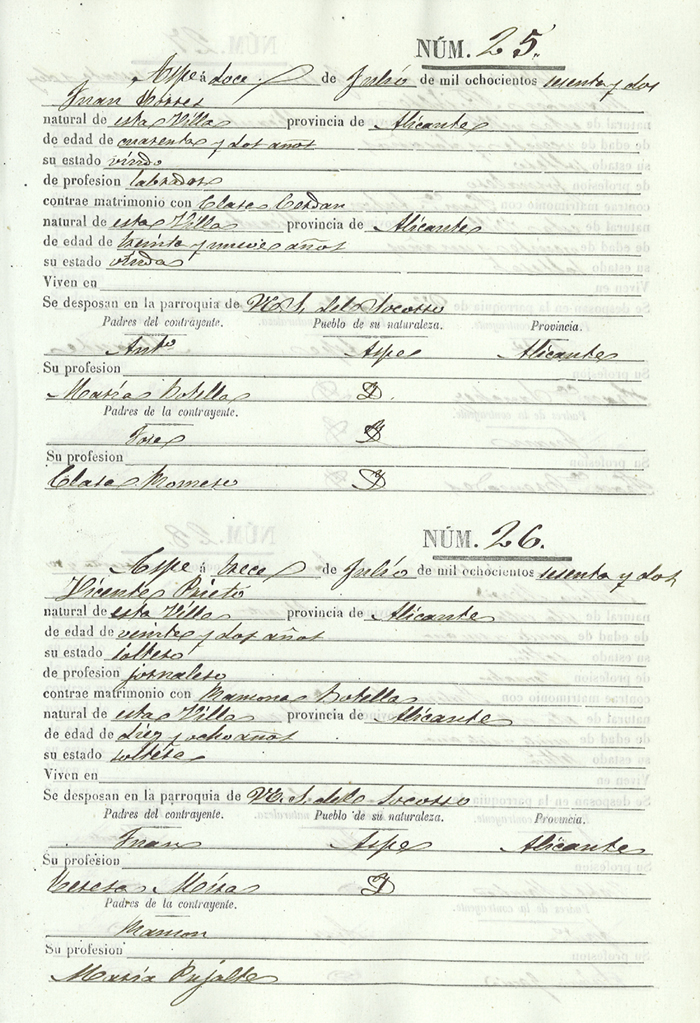 NÚM. 25.
Aspe á doce de Julio de mil ochocientos sesenta y dos
Juan Torres
natural de esta Villa provincia de Alicante
de edad de cuarenta y dos años
su estado viudo
de profesion labrador
contrae matrimonio con Clara Cerdan
natural de esta Villa provincia de Alicante
de edad de treinta y nueve años
su estado viuda
Viven en
Se desposan en la parroquia de N. S. del Socorro
Padres del contrayente. Pueblo de su naturaleza. Provincia.
Antº Aspe Alicante
Su profesion
María Botella D.
Padres de la contrayente.
Jose D
Su profesion
Clara Romero D
NÚM. 26.
Aspe á trece de Julio de mil ochocientos sesenta y dos
Vicente Prieto
natural de esta Villa provincia de Alicante
de edad de veinte y dos años
su estado soltero
de profesion jornalero
contrae matrimonio con Ramona Botella
natural de esta Villa provincia de Alicante
de edad de diez y ocho años
su estado soltera
Viven en
Se desposan en la parroquia de N. S. del Socorro
Padres del contrayente. Pueblo de su naturaleza. Provincia.
Juan Aspe Alicante
Su profesion
Teresa Mira D
Padres de la contrayente.
Ramon
Su profesion
María Pujalte